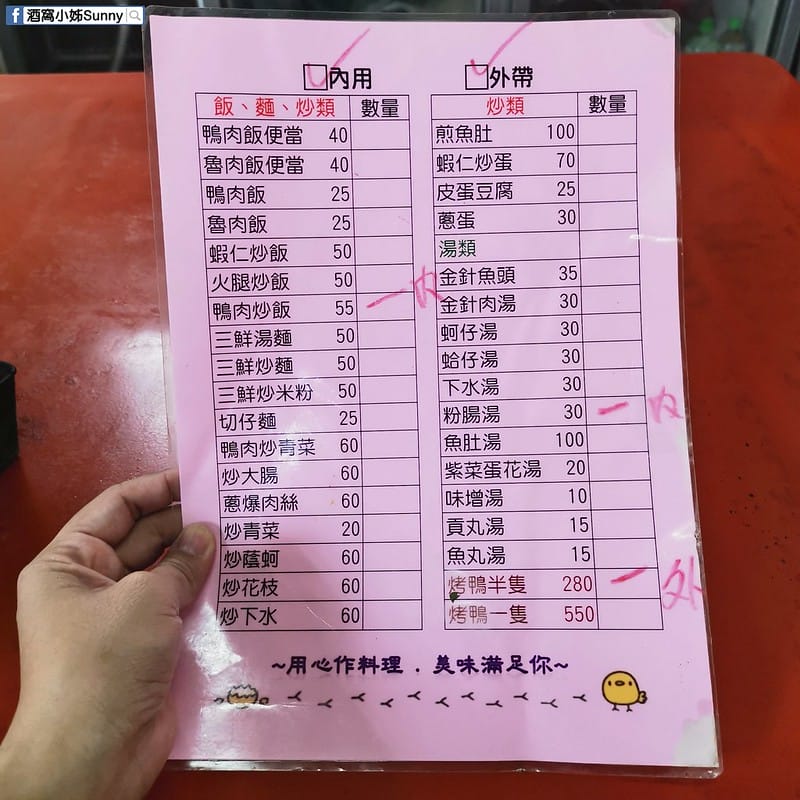 酒窩小姊Sunny
內用
飯、麵、炒類 數量
鴨肉飯便當 40
魯肉飯便當 40
鴨肉飯 25
魯肉飯 25
蝦仁炒飯 50
火腿炒飯 50
鴨肉炒飯 55 一內
三鮮湯麵 50
三鮮炒麵 50
三鮮炒米粉 50
切仔麵 25
鴨肉炒青菜 60
炒大腸 60
蔥爆肉絲 60
炒青菜 20
炒蔭蚵 60
炒花枝 60
炒下水 60
外帶
炒類 數量
煎魚肚 100
蝦仁炒蛋 70
皮蛋豆腐 25
蔥蛋 30
湯類
金針魚頭 35
金針肉湯 30
蚵仔湯 30
蛤仔湯 30
下水湯 30
粉腸湯 30 一內
魚肚湯 100
紫菜蛋花湯 20
味增湯 10
貢丸湯 15
魚丸湯 15
烤鴨半隻 280 一外
烤鴨一隻 550
~用心作料理．美味滿足你~